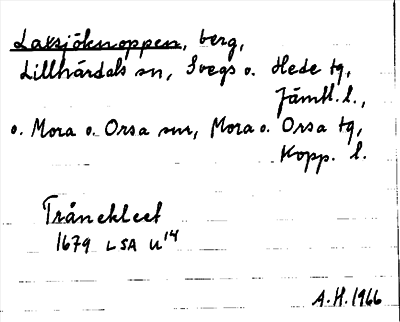 Laksjöknoppen, berg,
Lillhärdals sn, Svegs o. Hede tg,
Jämtl. l.,
o. Mora o. Orsa snr, Mora o. Orsa tg,
Kopp. l.
Trånekleet
1679 LSA U14
A.H. 1966